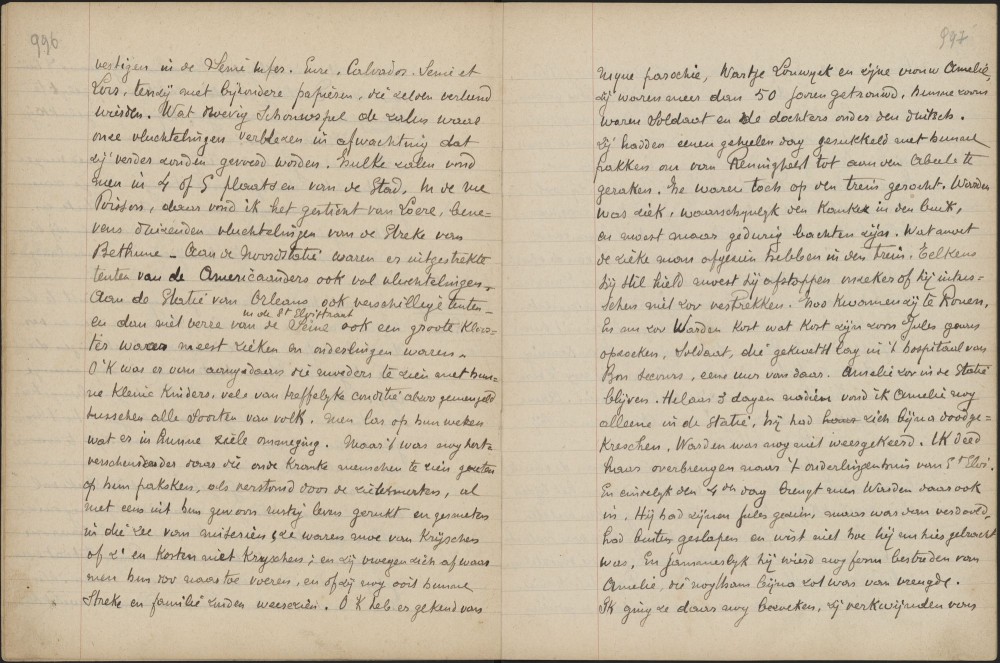 996
vestigen in de Seine infer. Eure. Calvados. Seine et
Loir, tenzij met bijzondere papieren, die zelden verleend
wierden. Wat droevig Schouwspel de zalen waar
onze vluchtelingen verbleven in afwachting dat
zij verder zouden gevoerd worden. Zulke zalen vond
men in 4 of 5 plaatsen van de Stad. In de rue
Poisson, daar vond ik het gesticht van Loere, bene-
vens duizenden vluchtelingen van de Streke van
Bethune - Aan de Noordstatie waren er uitgestrekte
tenten van de Americaanders ook vol vluchtelingen,
Aan de Statie van Orleans ook verschillige tenten -
in de St Eloistraat
en dan niet verre van de Seine ook een groote kloos-
ter waar meest zieken en ouderlingen waren.
O 'K was er van aangedaan die moeders te zien met hun-
ne kleine kinders, vele van treffelyke conditie aldaar gemengeld
tusschen alle soorten van volk. Men las op hun wezen
wat er in hunne ziele ommeging. Maar 't was nog hert-
verscheurender daar die oude kranke menschen te zien gezeten
op hun pakken, als verstomd door de zielesmerten, al
met eens uit hun gewoon rustig leven gerukt en gesmeten
in die zee van miserien; ze waren moe van kryschen
of z' en kosten niet kryschen; en zij vroegen zich af waar
men hun zoo naartoe voeren, en of zij nog ooit hunne
Streke en familie zouden weerzien. O 'K heb er gekend van

997
myne parochie, Wardje Louwyck en zijne vrouw Amelie,
zij waren meer dan 50 jaren getrouwd, hunne zoons
waren soldaat en de dochters onder den duitsch.
Zij hadden eenen geheelen dag gesukkeld met hunne
pakken om van Reninghelst tot aan den Abeele te
geraken. Ze waren toch op den trein geraakt. Warden
was ziek, waarschynlyk den kanker in den buik,
en moest maar gedurig bachten zijn. Wat moet
de zieke man afgezien hebben in den trein. Telkens
hij stil hield moest hij afstappen onzeker of hij intus-
schen niet zou vertrekken. Zoo kwamen zij te Rouen,
En nu zou Warden kost wat kost zijn zoon Jules gaan
opzoeken, soldaat, die gekwetst lag in 't hospitaal van
Bon Secours, eene uur van daar. Amelie zou in de Statie
blijven. Helaas 3 dagen nadien vond ik Amelie nog
alleene in de Statie, zij had haar zich bijna doodge-
kreschen, Warden was nog niet weergekeerd. Ik deed
haar overbrengen naar 't ouderlingenhuis van St Eloi.
En eindelyk den 4den dag brengt men Warden daar ook
in. Hij had zijnen Jules gezien, maar was dan verdoold,
had buiten geslapen en wist niet hoe hij nu hier gebracht
was, En jammerlyk hij wierd nog ferm bestreden van
Amelie, die nogthans bijna zot was van vreugde.
Ik ging ze daar nog bezoeken, zij verkwijnden van